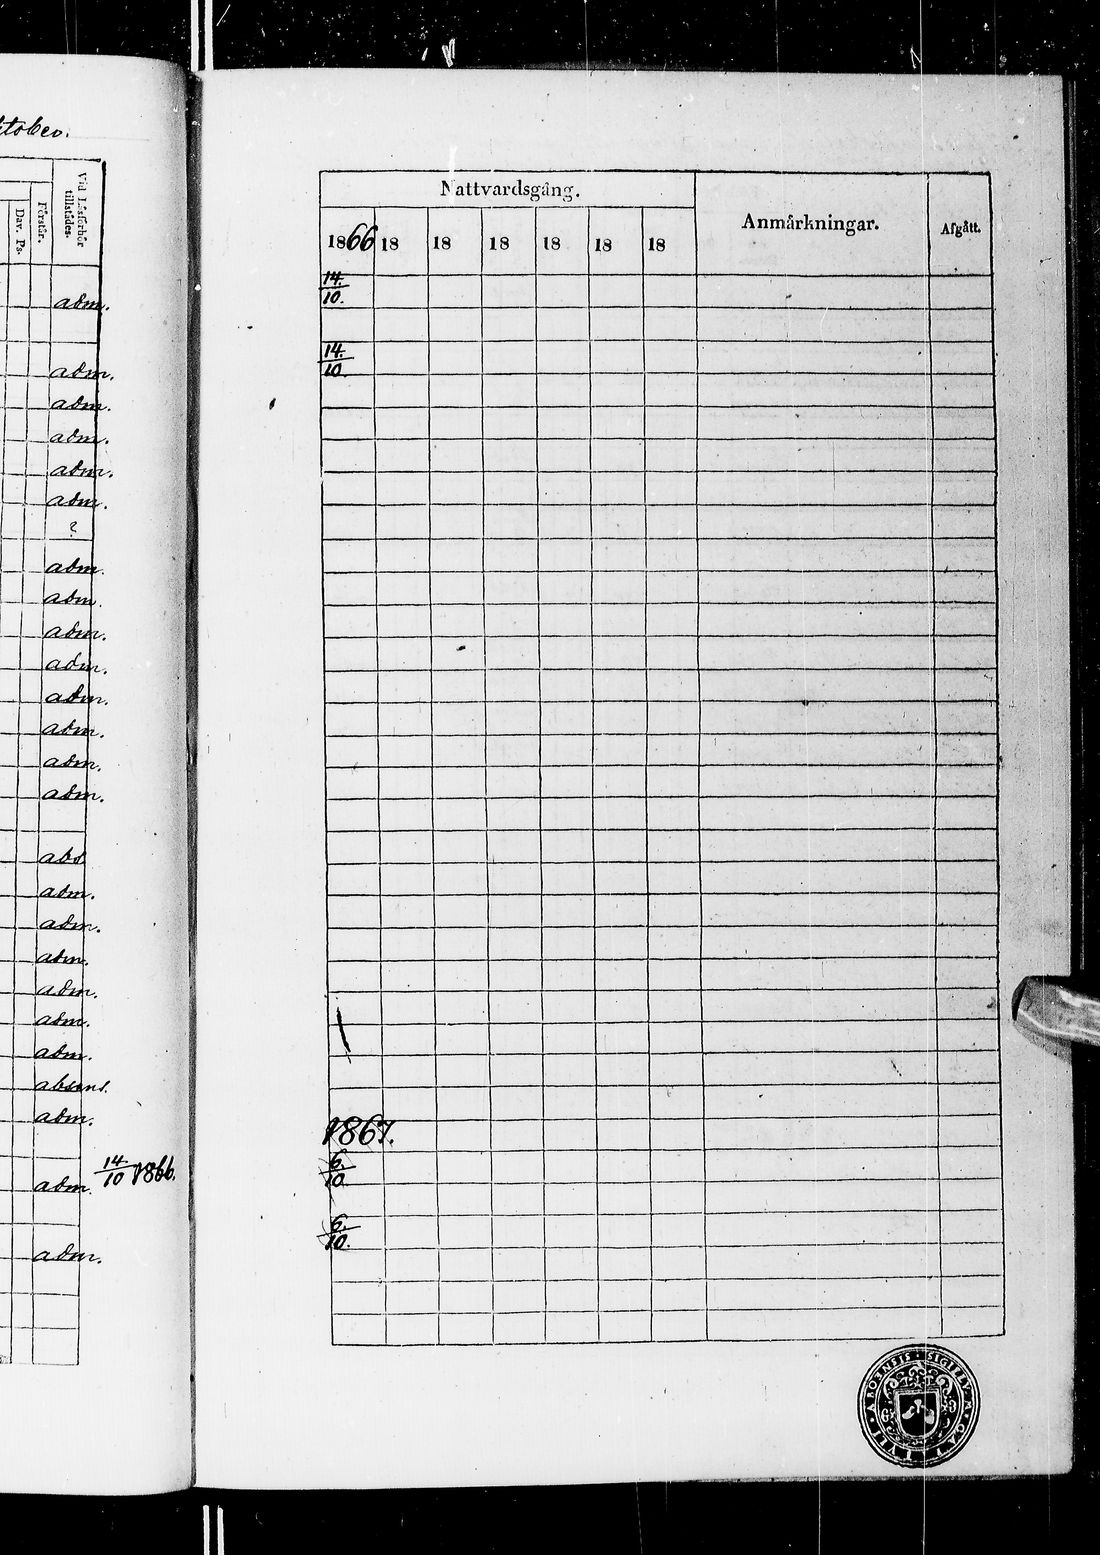 Dav. Ps.
Förstår.
Vid Läsförhör tillstädes.
adm.
adm.
adm.
adm.
adm.
adm.
?
adm.
adm.
adm.
adm.
adm.
adm.
adm.
adm.
abs
adm.
adm.
adm.
adm.
adm.
adm.
absens.
adm.
14/10 1866.
adm.
adm.
Nattvardsgång.
Anmärkningar.
Afgått.
1866 18 18 18 18 18 18
14./10.
14./10.
1867.
6./10.
6./10.